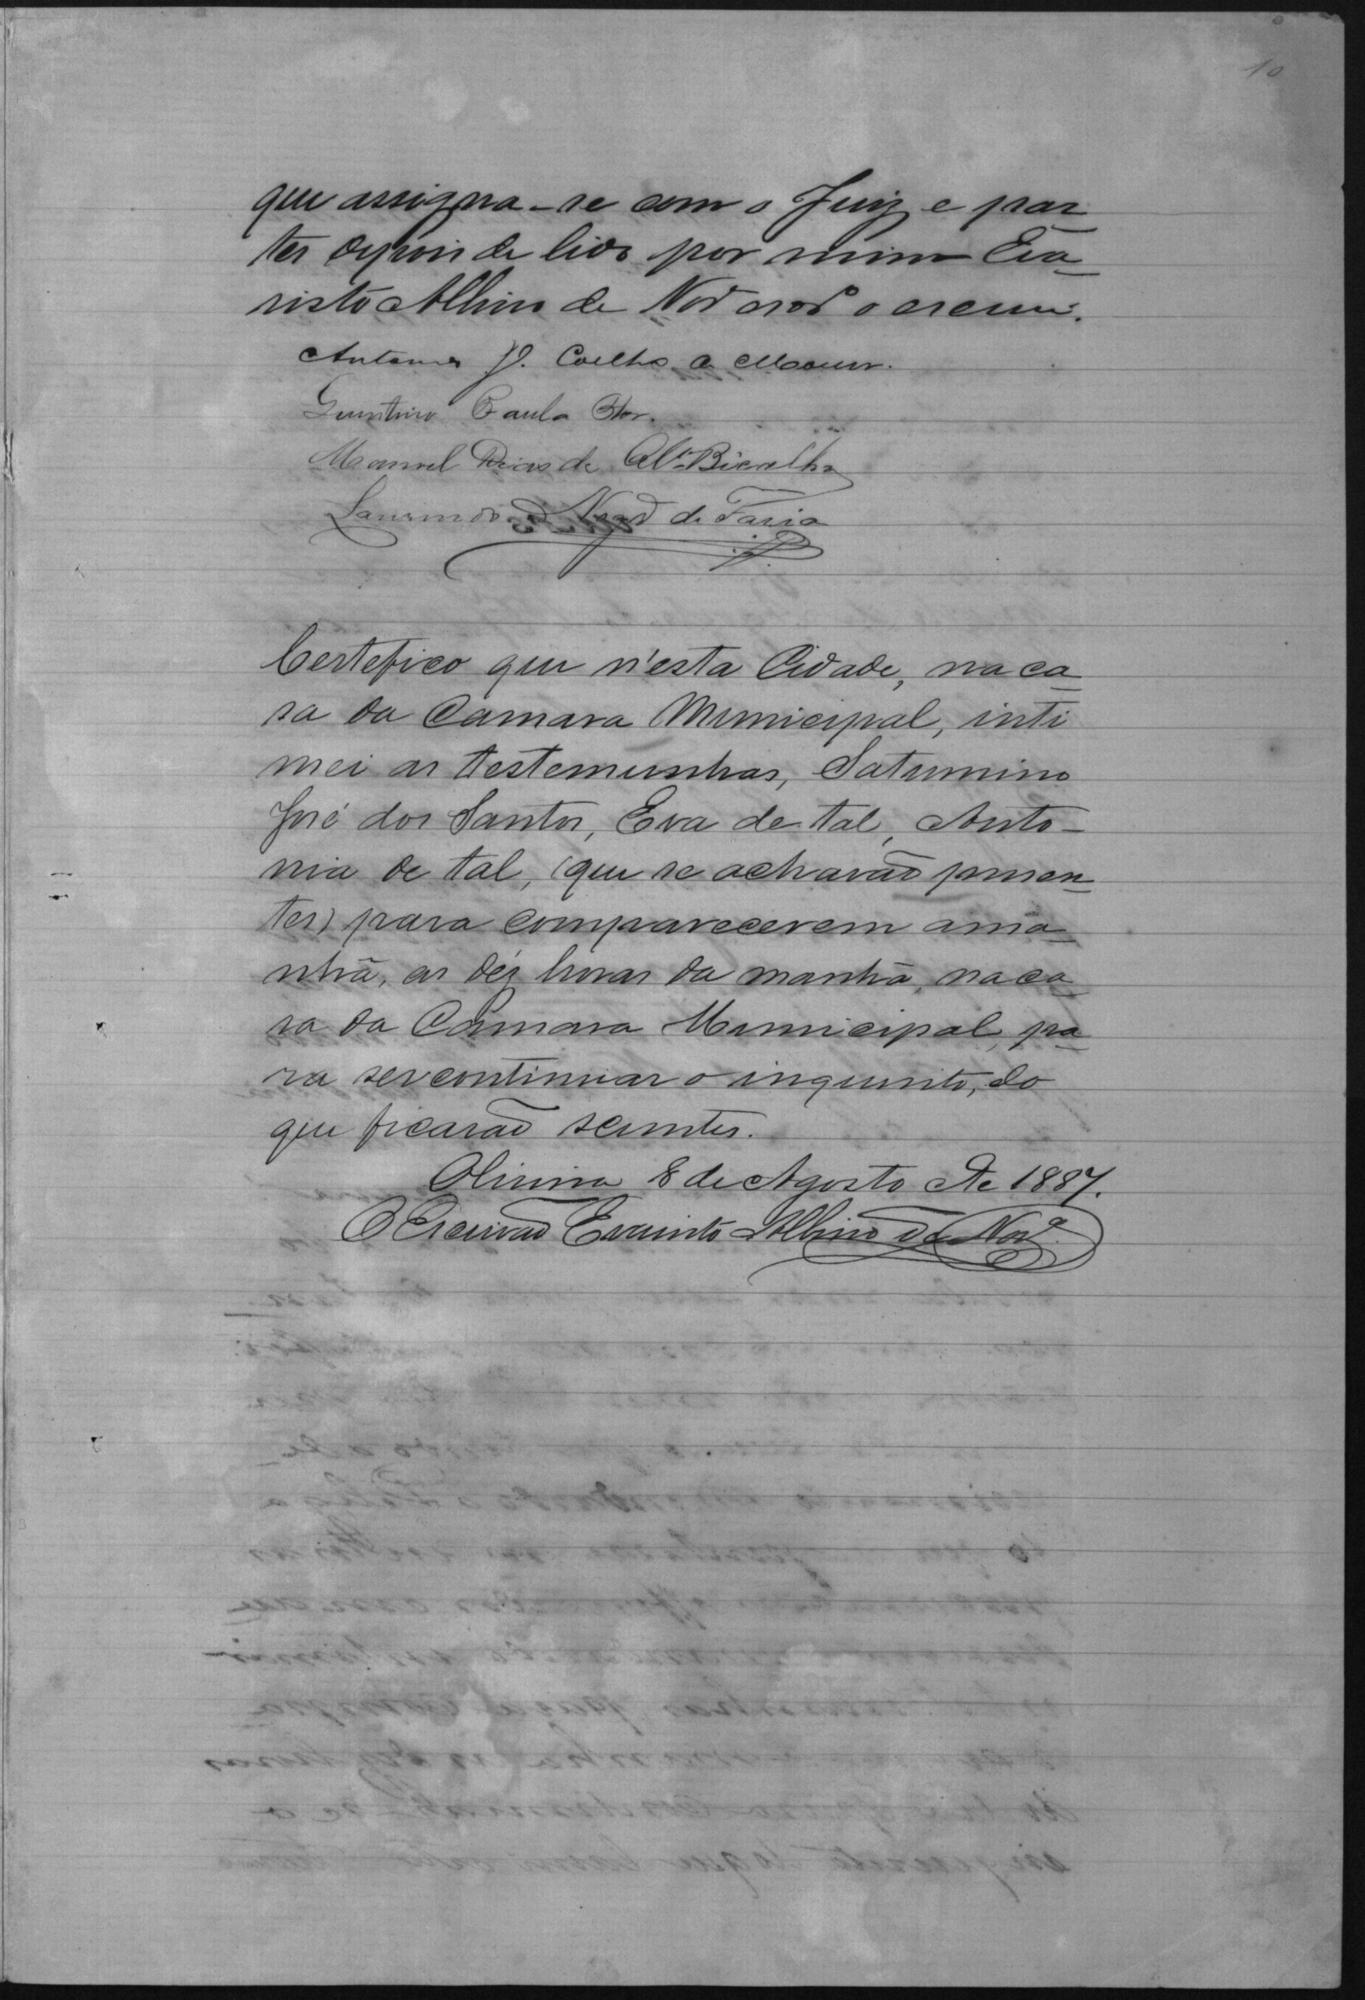 10
que assigna-se com o Juiz e par
tes depois de lido por mim Eva-
risto Albino de  o escrevi.
Antonio J. Coelho a Moura.
Paula
Manoel Dias de Alv.ª Bicalho
Laurindo Nogr.ª de Faria
Certefico que n'esta Cidade, na ca-
sa da Camara Municipal, inti
mei as testemunhas, Saturnino
José dos Santos, Eva de tal, Anto-
nia de tal, (que se achavão presen-
tes) para comparecerem ama-
nhã, as déz horas da manhã, na ca-
sa da Camara Municipal, pa-
ra ser continuar o inquerito, do
que ficarão scientes.
8 de Agosto de 1887.
O Escrivão Evaristo Albino de